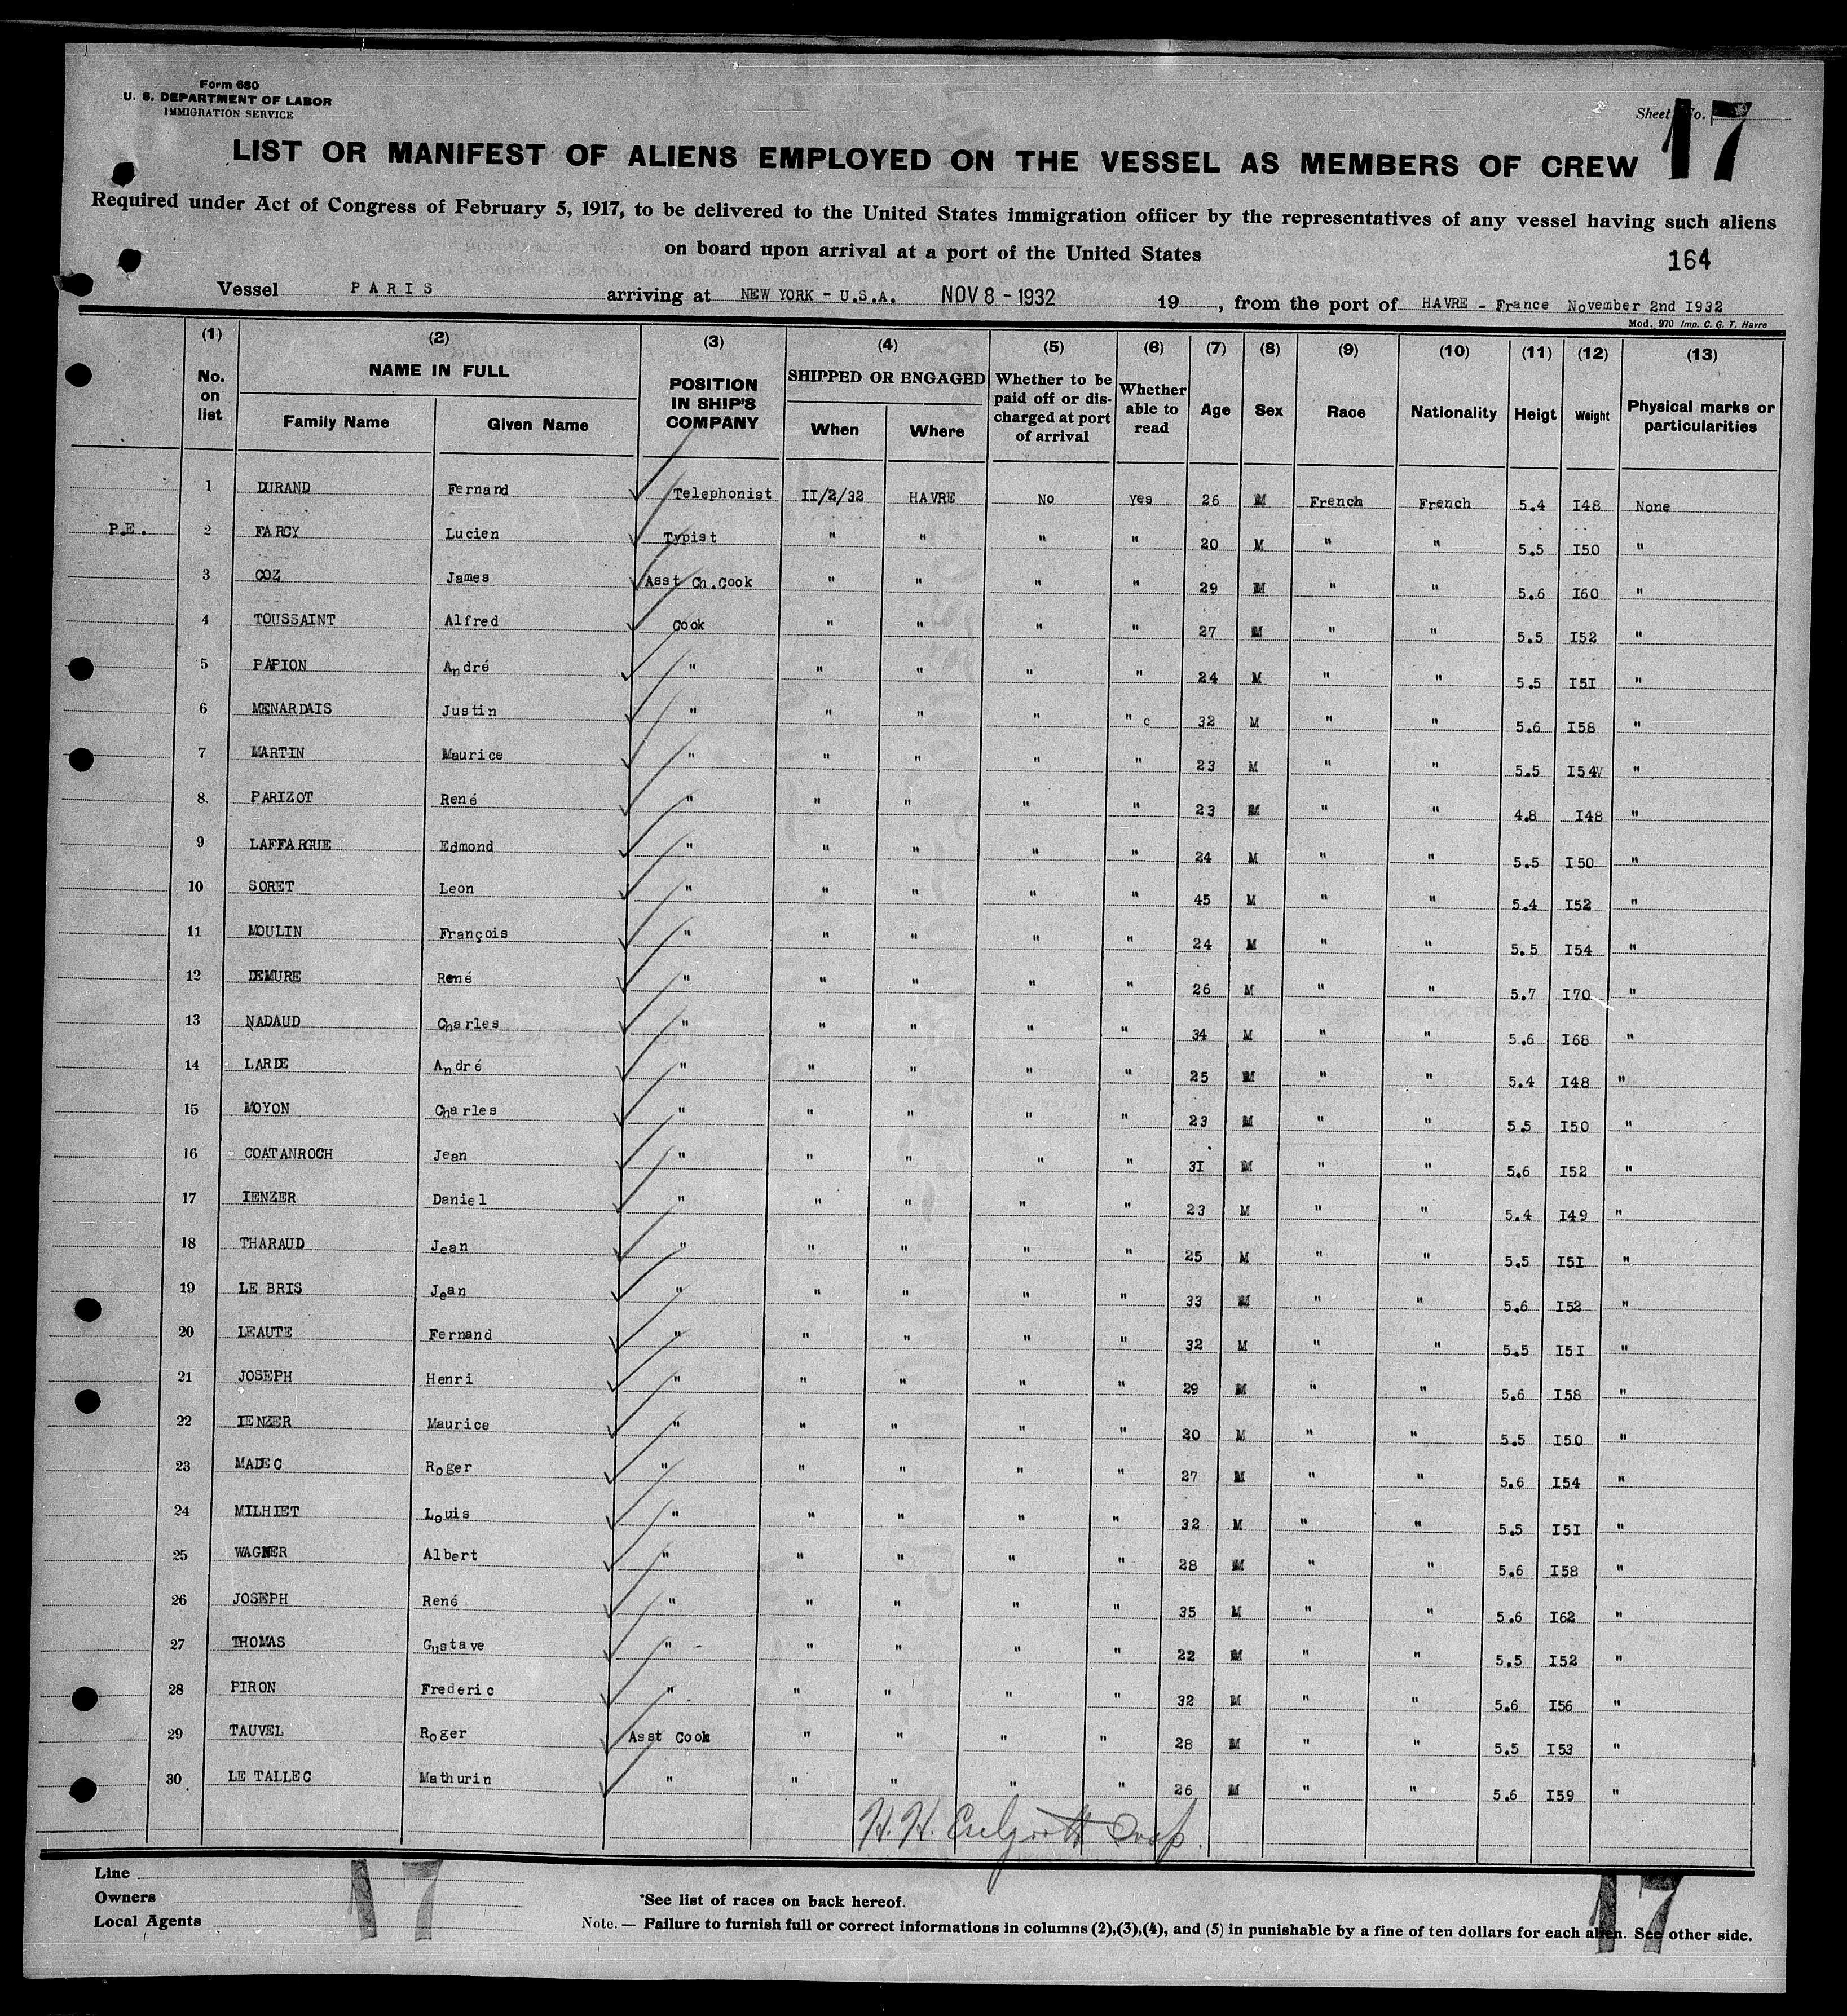 Form 680
U. S. DEPARTMENT OF LABOR
IMMIGRATION SERVICE
Sheet No. 17
LIST OR MANIFEST OF ALIENS EMPLOYED ON THE VESSEL AS MEMBERS OF CREW
Required under Act of Congress of February 5, 1917, to be delivered to the United States immigration officer by the representatives of any vessel having such aliens
on board upon arrival at a port of the United States
164
Vessel PARIS arriving at NEW YORK - U.S.A. NOV 8 - 1932 19 , from the port of HAVRE - France November 2nd I932
Mod. 970 Imp. C. G. T. Havre
(1) (2) (3) (4) (5) (6) (7) (8) (9) (10) (11) (12) (13)
No. on list NAME IN FULL Family Name Given Name POSITION IN SHIP'S COMPANY SHIPPED OR ENGAGED When Where Whether to be paid off or discharged at port of arrival Whether able to read Age Sex Race Nationality Heigt Weight Physical marks or particularities
1 DURAND Fernand Telephonist II/2/32 HAVRE No yes 26 M French French 5.4 I48 None
P.E. 2 FARCY Lucien Typist " " " " 20 M " " 5.5 I50 "
3 COZ James Asst Ch.Cook " " " " 29 M " " 5.6 I60 "
4 TOUSSAINT Alfred Cook " " " " 27 M " " 5.5 I52 "
5 PAPION André " " " " " 24 M " " 5.5 I5I "
6 MENARDAIS Justin " " " " " c 32 M " " 5.6 I58 "
7 MARTIN Maurice " " " " " 23 M " " 5.5 I54V "
8. PARIZOT René " " " " " 23 M " " 4.8 I48 "
9 LAFFARGUE Edmond " " " " " 24 M " " 5.5 I50 "
10 SORET Leon " " " " " 45 M " " 5.4 I52 "
11 MOULIN François " " " " " 24 M " " 5.5 I54 "
12 DEMURE René " " " " " 26 M " " 5.7 I70 "
13 NADAUD Charles " " " " " 34 M " " 5.6 I68 "
14 LARDE André " " " " " 25 M " " 5.4 I48 "
15 MOYON Charles " " " " " 23 M " " 5.5 I50 "
16 COATANROCH Jean " " " " " 3I M " " 5.6 I52 "
17 IENZER Daniel " " " " " 23 M " " 5.4 I49 "
18 THARAUD Jean " " " " " 25 M " " 5.5 I5I "
19 LE BRIS Jean " " " " " 33 M " " 5.6 I52 "
20 LEAUTE Fernand " " " " " 32 M " " 5.5 I5I "
21 JOSEPH Henri " " " " " 29 M " " 5.6 I58 "
22 IENZER Maurice " " " " " 20 M " " 5.5 I50 "
23 MADEC Roger " " " " " 27 M " " 5.6 I54 "
24 MILHIET Louis " " " " " 32 M " " 5.5 I5I "
25 WAGNER Albert " " " " " 28 M " " 5.6 I58 "
26 JOSEPH René " " " " " 35 M " " 5.6 I62 "
27 THOMAS Gustave " " " " " 22 M " " 5.5 I52 "
28 PIRON Frederic " " " " " 32 M " " 5.6 I56 "
29 TAUVEL Roger Asst Cook " " " " 28 M " " 5.5 I53 "
30 LE TALLEC Mathurin " " " " " 26 M " " 5.6 I59 "
H. H.
Line
Owners
Local Agents
17
*See list of races on back hereof.
Note. — Failure to furnish full or correct informations in columns (2),(3),(4), and (5) in punishable by a fine of ten dollars for each alien. See other side.
17